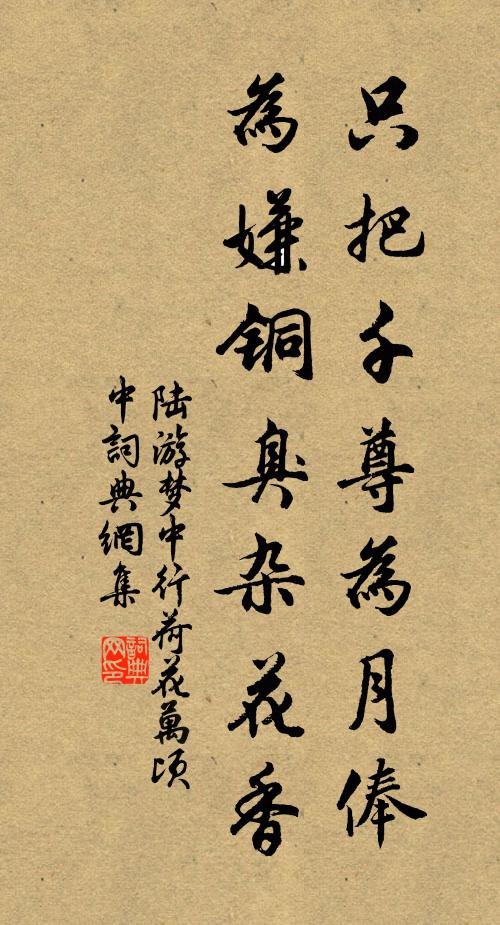 只把千尊為月俸
為嫌铜臭杂花香
陆游梦中行荷花萬顷
中詞典網集
詞典
网印